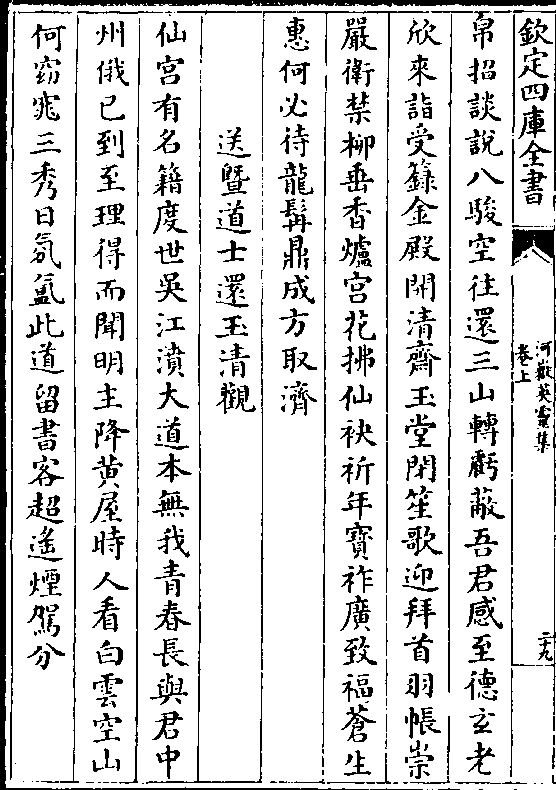 欽定四庫全書
河嶽英靈集
卷上
二十九
帛招談說八駿空往還三山轉虧蔽吾君感至德玄老
欣來詣受籙金殿開清齋玉堂閉笙歌迎拜首羽帳崇
嚴衛禁柳垂香爐宮花拂仙袂祈年寶祚廣致福蒼生
惠何必待龍髯鼎成方取濟
送暨道士還玉清觀
仙宮有名籍度世吳江濆大道本無我青春長與君中
州俄已到至理得而聞明主降黄屋時人看白雲空山
何窈窕三秀日氛氲此道留書客超遙煙駕分